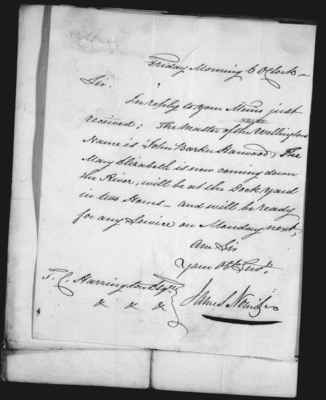 Friday Morning 6 OClock
Sir.
In reply to your Memo just
received; The Master of the Wellington's
Name is John Barker Harwood, The
Mary Elizabeth is now coming down
the River, will be at the Dock yard
in two Hours - and will be ready
for any Service on Monday next,
Am Sir
Your Obt Servt.
T. C. Harrington Esqre
&c &c &c
James